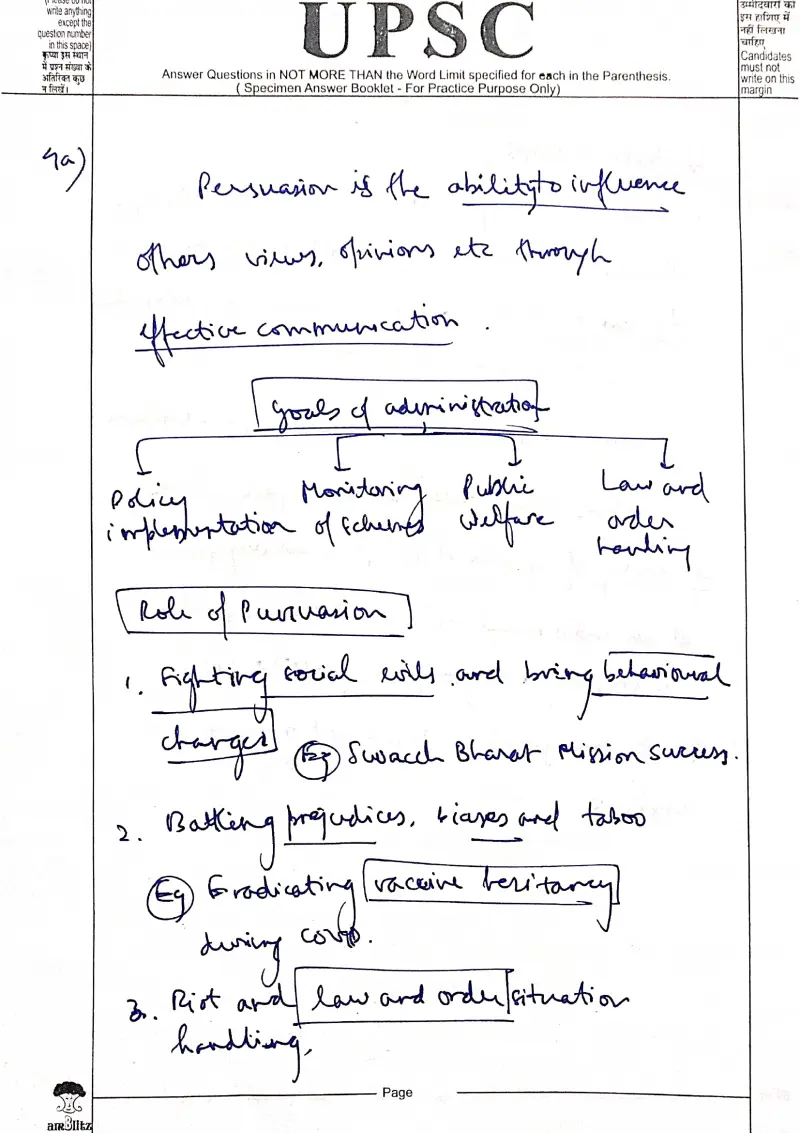 (Please do not
write anything
except the
question number
in this space)
कृप्या इस स्थान
में प्रश्न संख्या के
अतिरिक्त कुछ
न लिखें।
UPSC
Answer Questions in NOT MORE THAN the Word Limit specified for each in the Parenthesis.
( Specimen Answer Booklet - For Practice Purpose Only)
उम्मीदवारों को
इस हाशिए में
नहीं लिखना
चाहिए
Candidates
must not
write on this
margin
4a)
Persuasion is the ability to influence
others views, opinions etc through
effective communication.
Goals of administration
Policy
implementation
Monitoring
of schemes
Public
Welfare
Law and
order
handling
Role of Persuasion
1. Fighting social evils and bring behavioural
changes
Eg Swacch Bharat Mission success.
2. Battling prejudices, biases and taboo
Eg Eradicating vaccine hesitancy
during covid.
3. Riot and law and order situation
handling,
Page